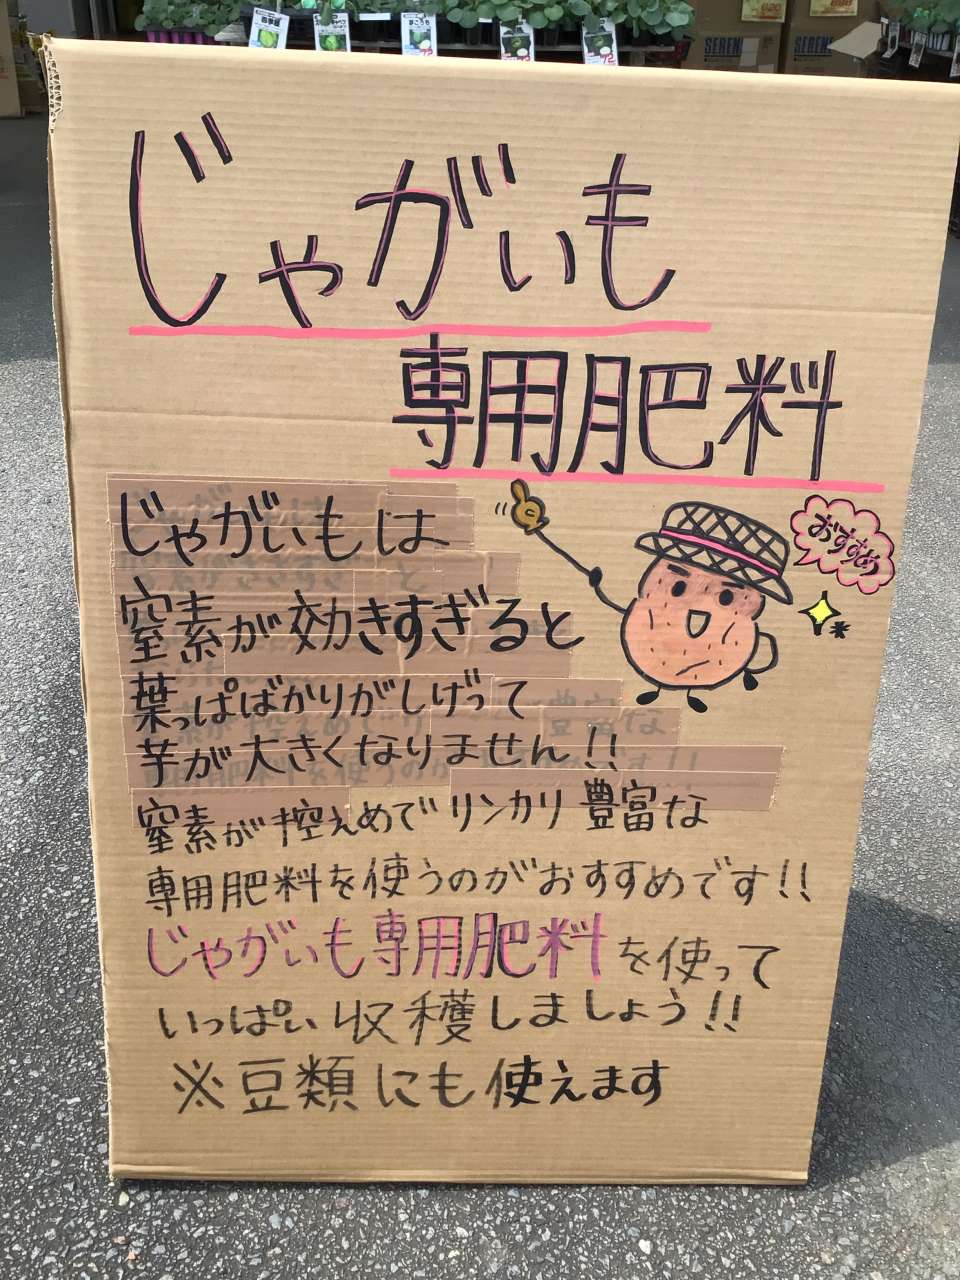 じゃがいも
専用肥料
おすすめ
じゃがいもは
窒素が効きすぎると
葉っぱばかりがしげって
芋が大きくなりません!!
窒素が控えめでリンカリ豊富な
専用肥料を使うのがおすすめです!!
じゃがいも専用肥料を使って
いっぱい収穫しましょう!!
※豆類にも使えます